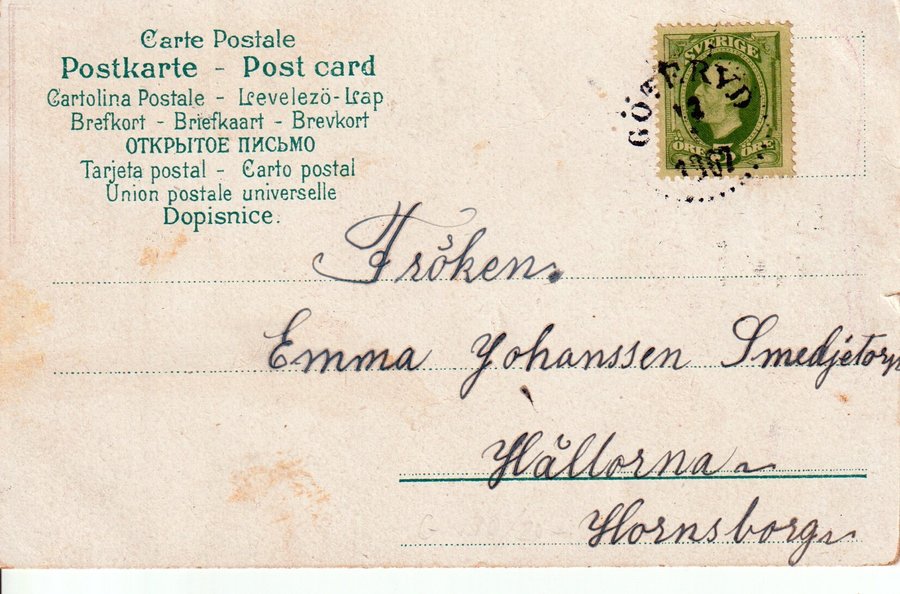 Carte Postale
Postkarte - Post card
Cartolina Postale - Levelezö-Lap
Brefkort - Briefkaart - Brevkort
ОТКРЫТОЕ ПИСЬМО
Tarjeta postal - Carto postal
Union postale universelle
Dopisnice.
SVERIGE
ÖRE ÖRE
GÖTERYD
1907
Fröken.
Emma Johanssen Smedjetorp
Hällorna
Hornsborg